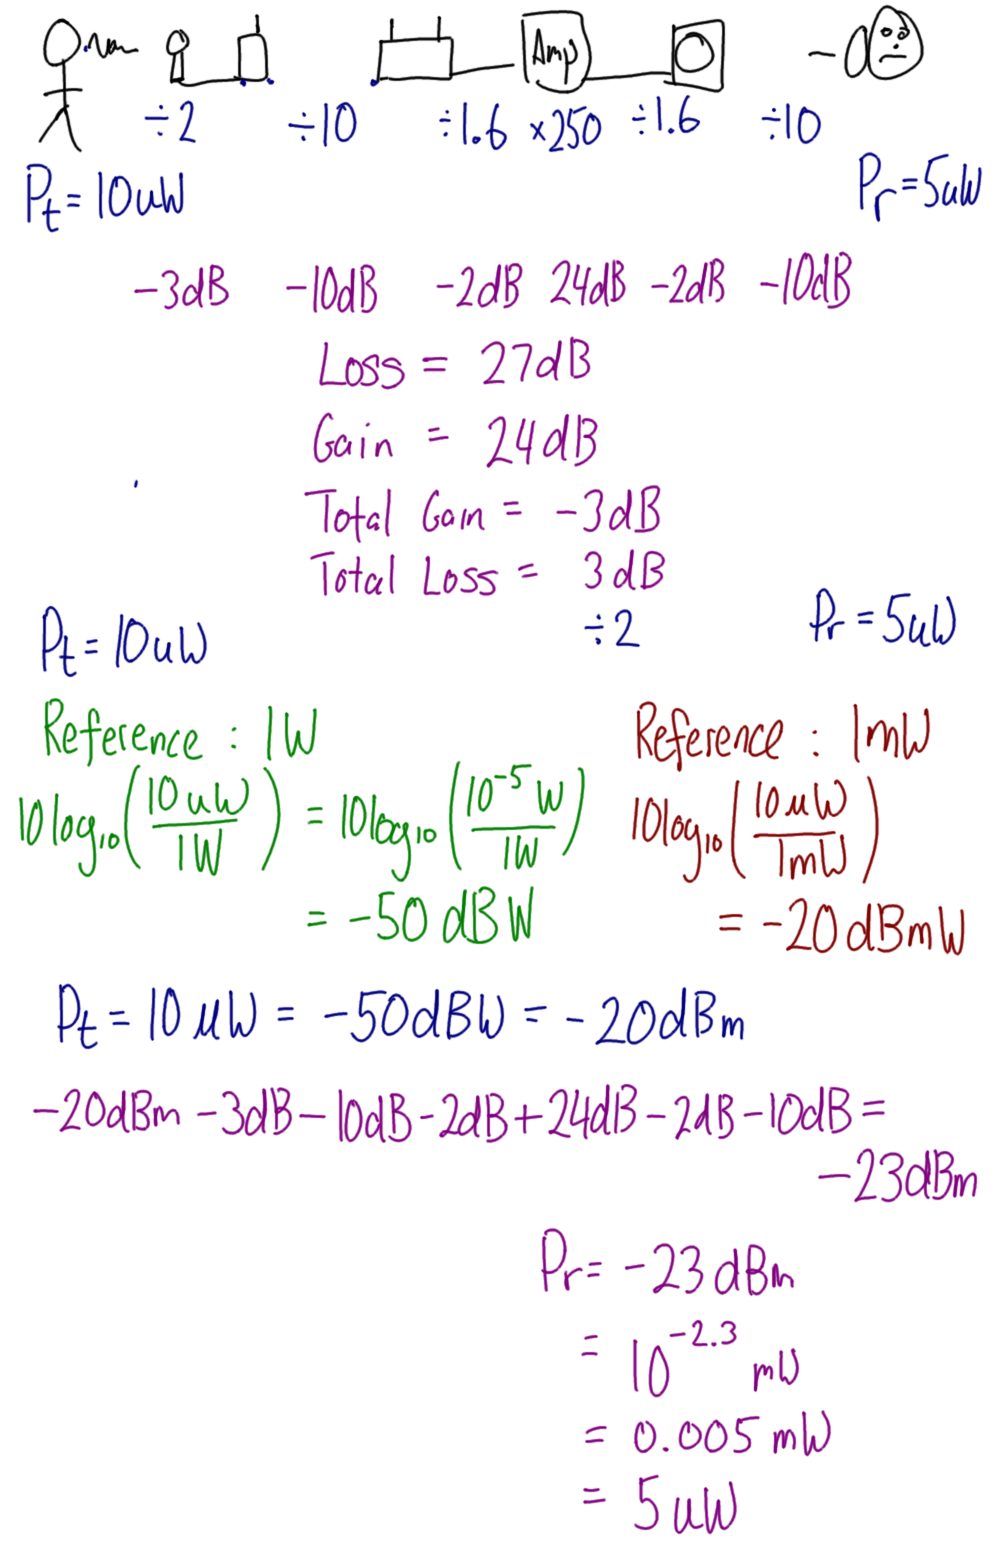 Amp
÷2 ÷10 ÷1.6 ×250 ÷1.6 ÷10
Pt = 10uW Pr = 5uW
-3dB -10dB -2dB 24dB -2dB -10dB
Loss = 27dB
Gain = 24dB
Total Gain = -3dB
Total Loss = 3dB
Pt = 10uW ÷2 Pr = 5uW
Reference : 1W
10log₁₀(10uW/1W) = 10log₁₀(10⁻⁵W/1W)
= -50 dBW
Reference : 1mW
10log₁₀(10µW/1mW)
= -20dBmW
Pt = 10µW = -50dBW = -20dBm
-20dBm -3dB -10dB -2dB + 24dB - 2dB -10dB =
-23dBm
Pr = -23dBm
= 10^-2.3 mW
= 0.005 mW
= 5uW